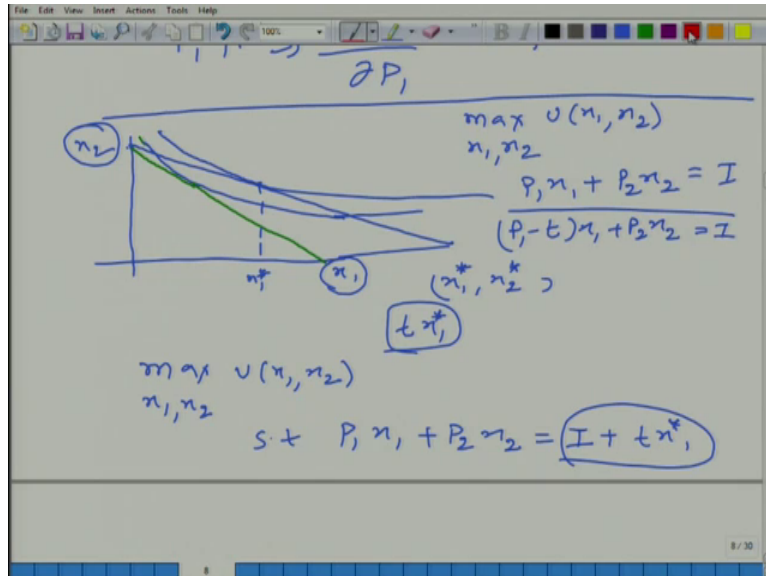 File Edit View Insert Actions Tools Help
100%
B I
∂P₁
max U(x₁, x₂)
x₁, x₂
P₁x₁ + P₂x₂ = I
(P₁-t)x₁ + P₂x₂ = I
x₂
x₁*
x₁
(x₁*, x₂*)
t x₁*
max U(x₁, x₂)
x₁, x₂
s.t P₁x₁ + P₂x₂ = I + t x*₁
8 / 30
8